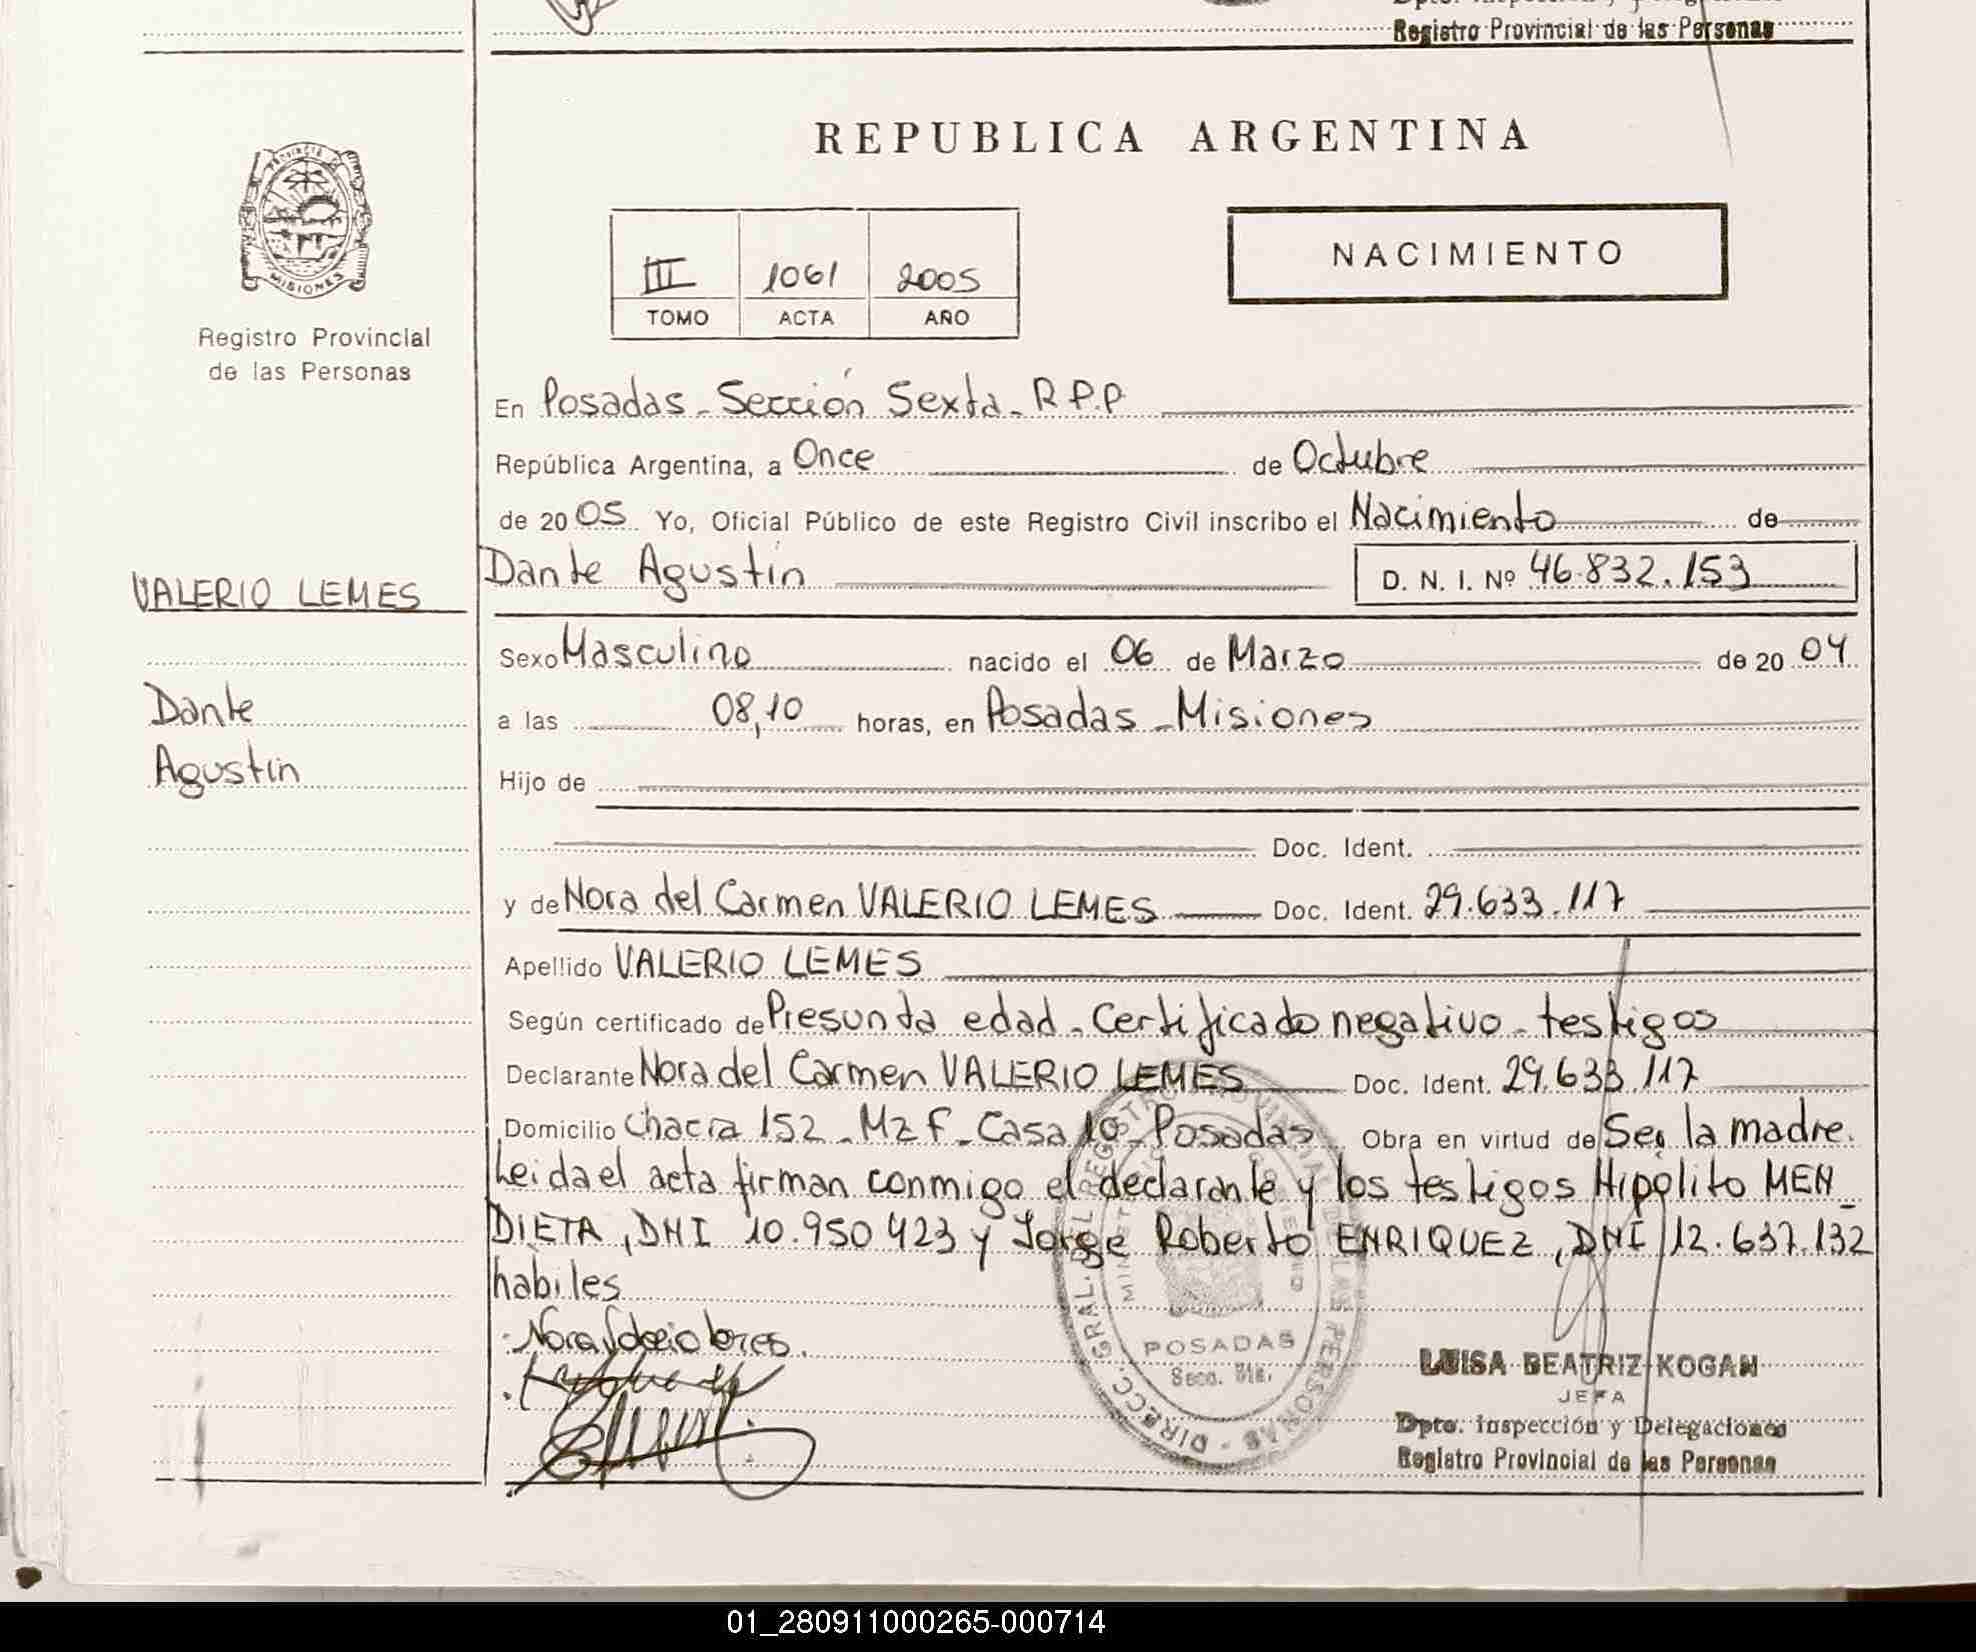 Registro Provincial de las Personas
REPUBLICA ARGENTINA
PROVINCIA DE
MISIONES
Registro Provincial
de las Personas
III 1061 2005
TOMO ACTA AÑO
NACIMIENTO
En Posadas - Sección Sexta - R.P.P
República Argentina, a Once de Octubre
de 2005 Yo, Oficial Público de este Registro Civil inscribo el Nacimiento de
VALERIO LEMES
Dante Agustín D. N. I. Nº 46.832.153
Sexo Masculino nacido el 06 de Marzo de 2004
Dante
Agustín
a las 08,10 horas, en Posadas - Misiones
Hijo de
Doc. Ident.
y de Nora del Carmen VALERIO LEMES Doc. Ident. 29.633.117
Apellido VALERIO LEMES
Según certificado de Presunta edad - Certificado negativo - testigos
Declarante Nora del Carmen VALERIO LEMES Doc. Ident. 29.633.117
Domicilio Chacra 152 - Mz F - Casa 10 - Posadas Obra en virtud de Ser la madre.
Leida el acta firman conmigo el declarante y los testigos Hipólito MEN_
DIETA, DNI 10.950 423 y Jorge Roberto ENRIQUEZ, DNI 12.637.132
habiles
DIRECC. GRAL. DEL REGISTRO PROVINCIAL DE LAS PERSONAS
POSADAS
Secc. 6ta.
LUISA BEATRIZ KOGAN
JEFA
Dpto. Inspección y Delegaciones
Registro Provincial de las Personas
01_280911000265-000714